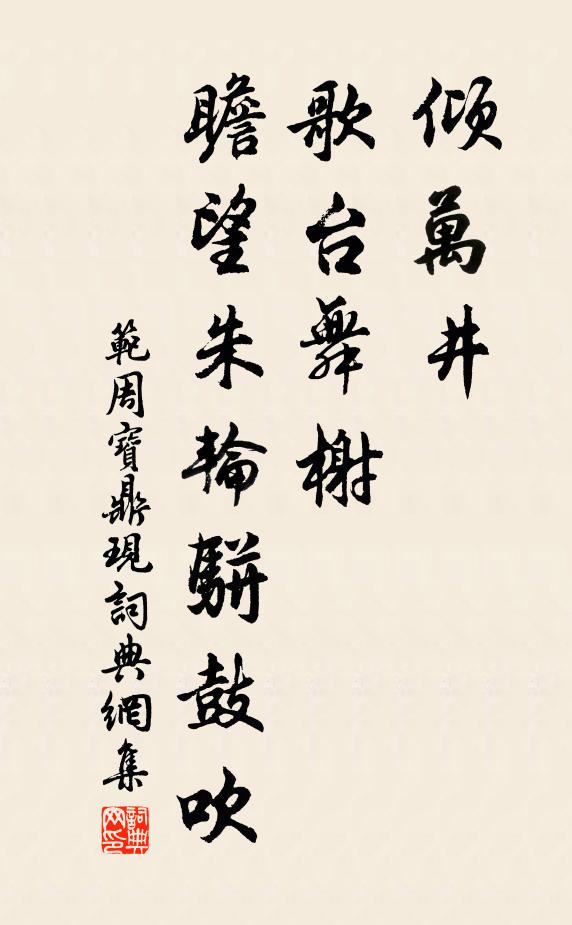 傾萬井
歌台舞榭
瞻望朱輪駢鼓吹
範周寶鼎現詞典網集
詞典网印